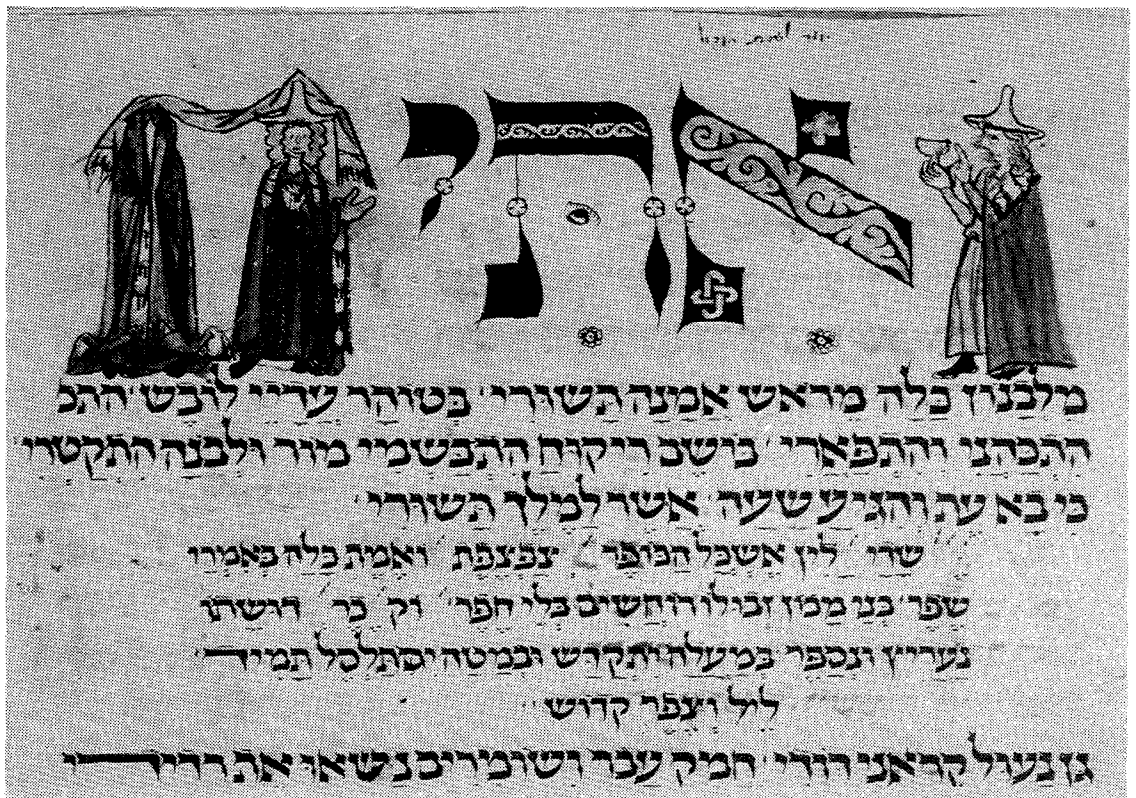 אתי
מלבנון כלה מראש אמנה תשורי בטוהר עדיי לובש התכ
התכהני והתפארי בושם ריקוח התבשמי מור ולבנה התקטרי
כי בא עת והגיע שעה אשר למלך תשורי
שדי לין אשכל הכופר צפצפת ואמת כלה באמרו
שפר בני ממון זבולו חשים בלי חפר דושתו
נעריץ ונספר במעלה יתקדש ובמטה יסתלסל תמיד
ליל וצפר קדוש
גן נעול קראני דודי חמק עבר ושומרים נשאו את רדידי